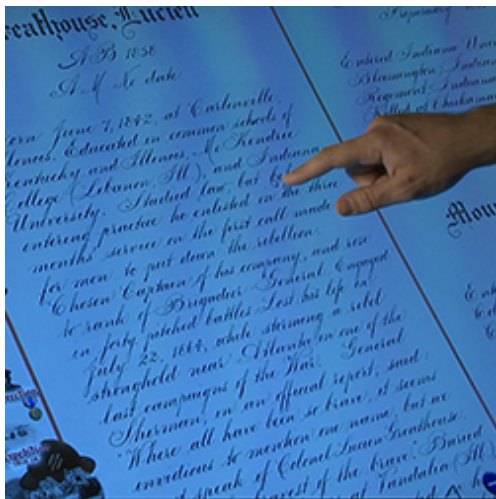 reathouse, Lucien
A B 1858
A M No date
orn June 7, 1842, at Carlinville,
llinois. Educated in common schools of
Kentucky and Illinois, Mc Kendree
College (Lebanon Ill), and Indiana
University. Studied law, but
entering practice he enlisted in the three
months service on the first call made
for men to put down the rebellion.
Chosen Captain of his company, and rose
to rank of Brigadier General. Engaged
in forty pitched battles. Lost his life on
July 22, 1864, while storming a rebel
stronghold near Atlanta in one of the
last campaigns of the War. General
Sherman, in an official report, said:
"Where all have been so brave, it seems
invidious to mention one name, but we
speak of Colonel Lucien Greathouse.
bravest of the brave." Buried
at Vandalia (Ill)
Preparatory
Entered Indiana Univ
Bloomington Indiana
Regiment Indiana
Killed at Chickamau
Moun
Ent